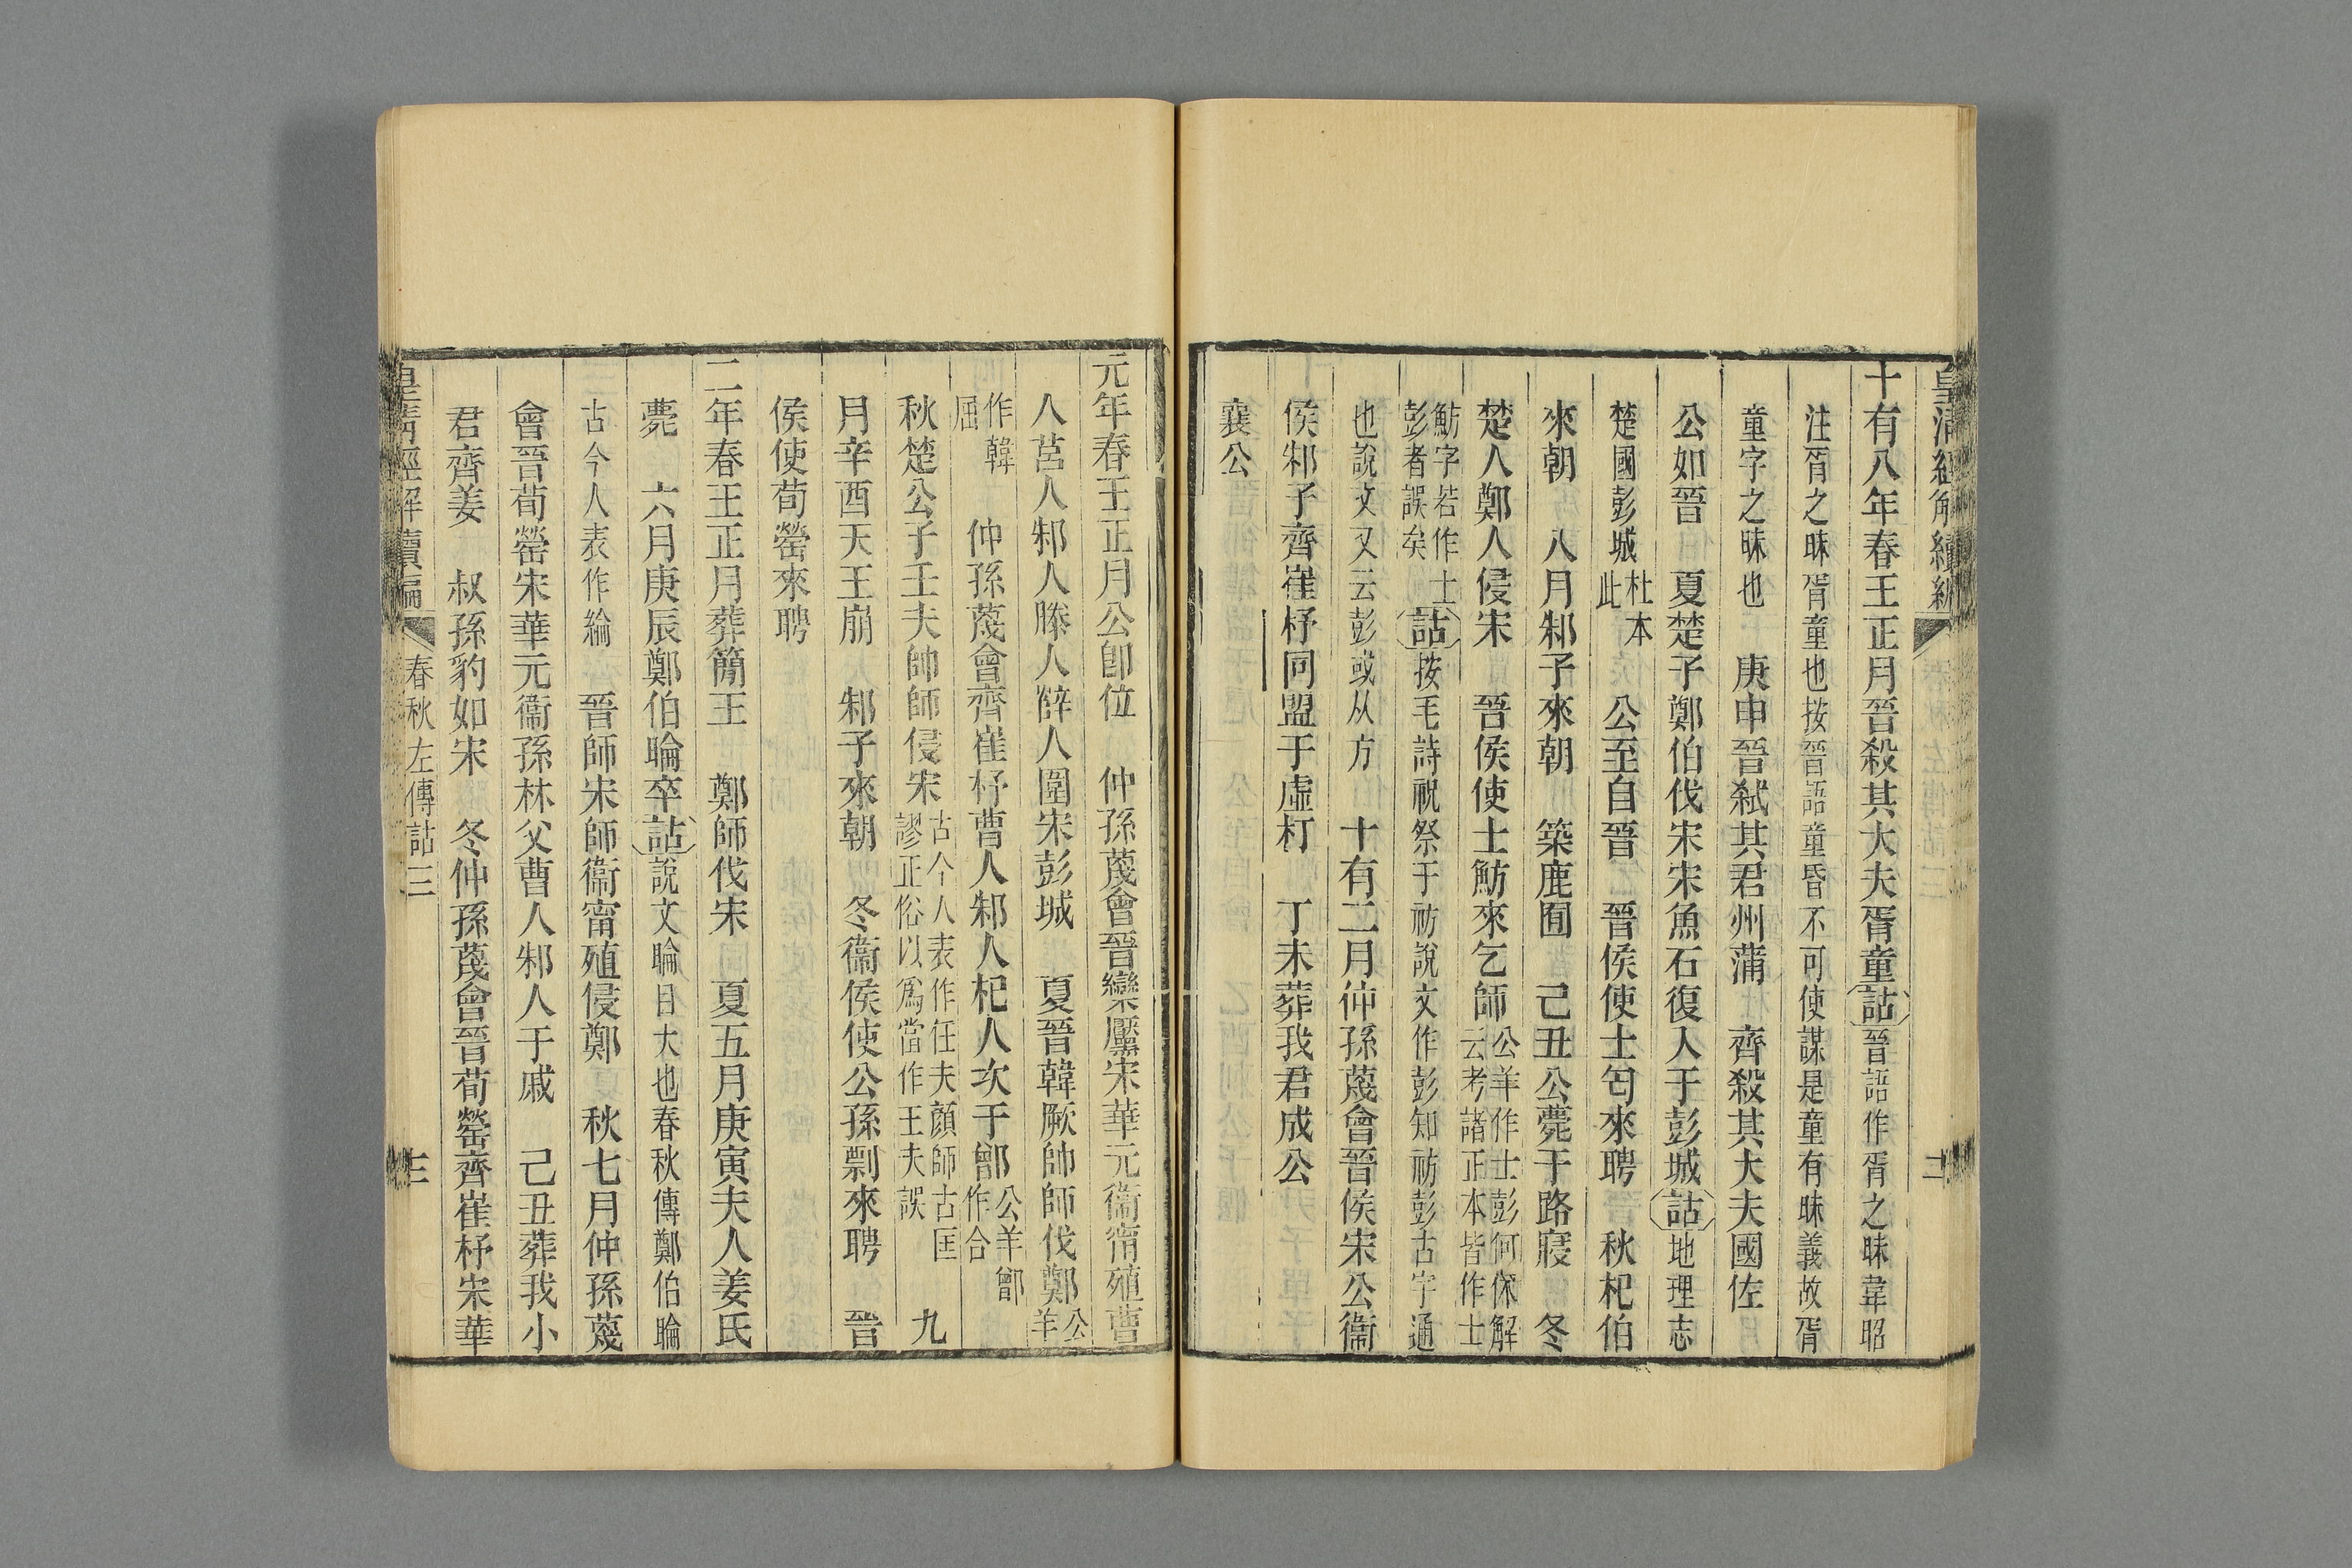 皇清經解續編
二
十有八年春王正月晉殺其大夫胥童詁晉語作胥之昧韋昭
注胥之昧胥童也按晉語童昏不可使謀是童有昧義故胥
童字之昧也 庚申晉弑其君州蒲 齊殺其大夫國佐
公如晉 夏楚子鄭伯伐宋宋魚石復入于彭城詁地理志
楚國彭城杜本此 公至自晉 晉侯使士匄來聘 秋杞伯
來朝 八月邾子來朝 築鹿囿 己丑公薨于路寢 冬
楚人鄭人侵宋 晉侯使士魴來乞師公羊作士彭何休解云考諸正本皆作士
魴字若作士彭者誤矣詁按毛詩祝祭于祊說文作彭知祊彭古字通
也說文又云彭或从方 十有二月仲孫蔑會晉侯宋公衞
侯邾子齊崔杼同盟于虛朾 丁未葬我君成公
襄公
元年春王正月公卽位 仲孫蔑會晉欒黶宋華元衞甯殖曹
人莒人邾人滕人薛人圍宋彭城 夏晉韓厥帥師伐鄭公羊
作韓屈 仲孫蔑會齊崔杼曹人邾人杞人次于鄫公羊鄫作合
秋楚公子壬夫帥師侵宋古今人表作任夫顏師古匡謬正俗以爲當作王夫誤 九
月辛酉天王崩 邾子來朝 冬衞侯使公孫剽來聘 晉
侯使荀罃來聘
二年春王正月葬簡王 鄭師伐宋 夏五月庚寅夫人姜氏
薨 六月庚辰鄭伯睔卒詁說文睔目大也春秋傳鄭伯睔
古今人表作綸 晉師宋師衞甯殖侵鄭 秋七月仲孫蔑
會晉荀罃宋華元衞孫林父曹人邾人于戚 己丑葬我小
君齊姜 叔孫豹如宋 冬仲孫蔑會晉荀罃齊崔杼宋華
皇淸經解續編 春秋左傳詁三
三